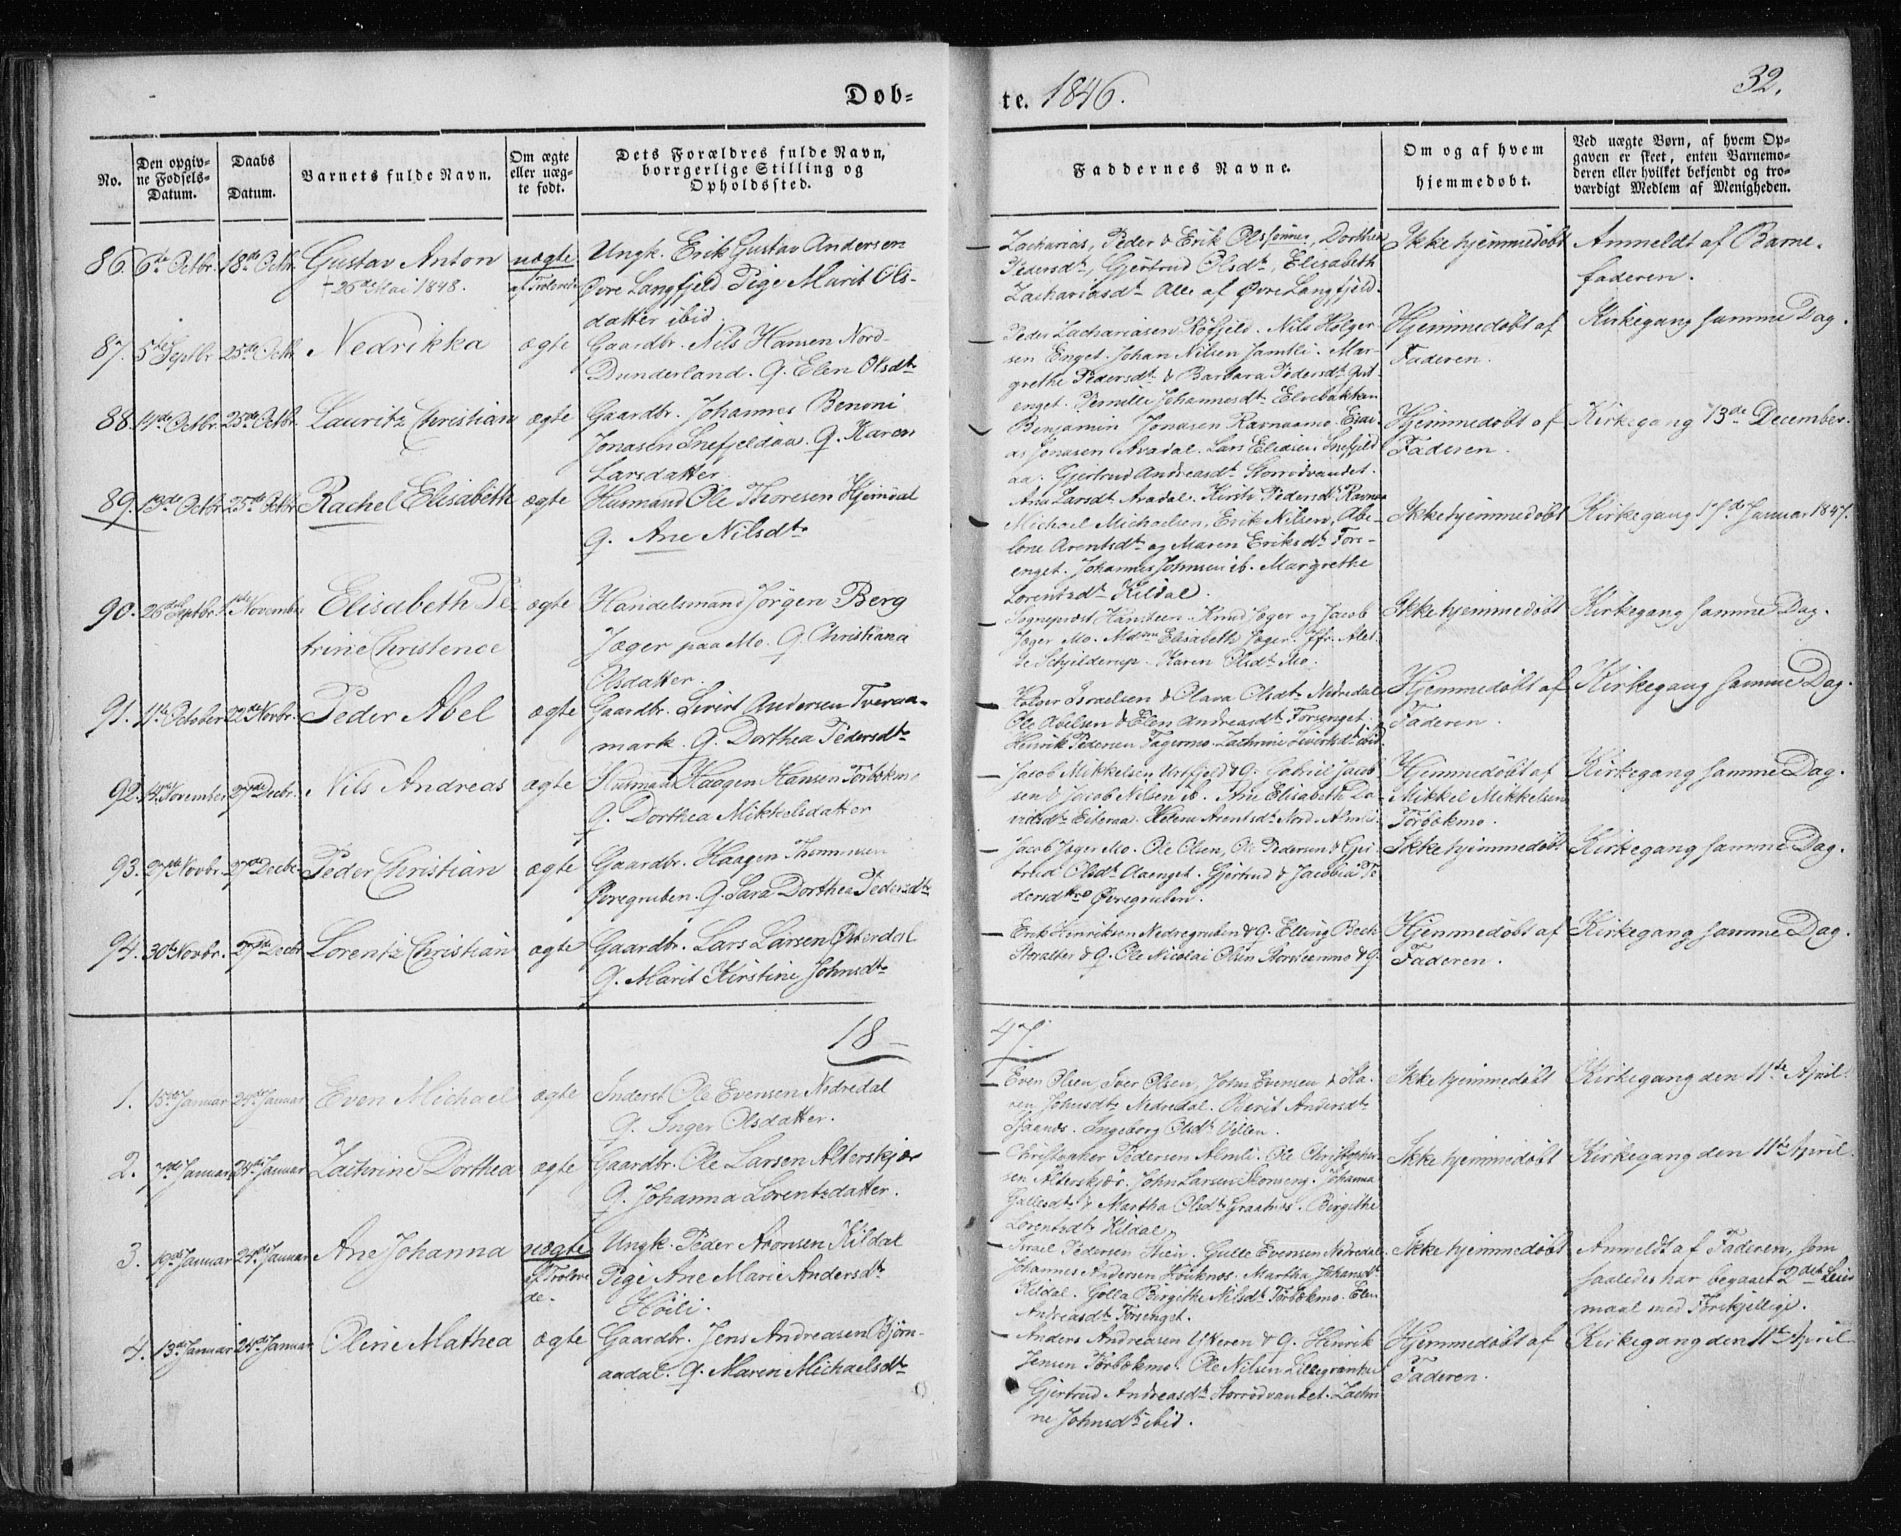 Døb=
te. 1846.
32.
No.
Den opgiv=
ne Fødsels=
Datum.
Daabs
Datum.
Barnets fulde Navn.
Om ægte
eller uæg=
te født.
Dets Forældres fulde Navn,
borrgerlige Stilling og
Opholdssted.
Faddernes Navne.
Om og af hvem
hjemmedøbt.
Ved uægte Børn, af hvem Op=
gaven er skeet, enten Barnemo=
deren eller hvilket bekjendt og tro=
værdigt Medlem af Menigheden.
86. 6te Octbr. 18de Octbr. Gustav Anton uægte Ungk. Erik Gustav Andersen
† 26de Mai 1848. af Trolovede Øvre Langfjeld Pige Marit Ols-
datter ibid.
Zacharias, Peder & Erik Olssønner, Dorthea
Pedersdt., Gjertrud Olsdt., Elisabeth
Zachariasdt. Alle af Øvre Langfjeld.
Ikke hjemmedøbt
Anmeldt af Barne-
faderen.
87. 5te Septbr. 25de Octbr. Nedrikka ægte Gaardbr. Nils Hansen Nord-
Dunderland. Q. Elen Olsdt.
Peder Zachariasen Røfjeld. Nils Holger-
sen Enget. Johan Nilsen Jamtli. Mar-
grethe Pedersdt. & Barbara Pedersdt.
enget. Pernille Johannesdt. Elvebakken
Hjemmedøbt af
Faderen.
Kirkegang samme Dag.
88. 4de Octbr. 25de Octbr. Lauritz Christian ægte Gaardbr. Johannes Benoni
Jonasen Snefjeldaa. Q. Karen
Larsdatter.
Benjamin Jonasen Ravnaamo. Esai-
as Jonasen Avadal. Lars Eliasen Snefjeld
aa. Gjertrud Andreasdt. Storrødvandet.
Ana Larsdt. Avadal. Kirst. Pedersdt. Ravnaa
Hjemmedøbt af
Faderen.
Kirkegang 13de December.
89. 13de Octbr. 25de Octbr. Rachel Elisabeth ægte Huusmand Ole Thoresen Hjemdal
Q. Ane Nilsdt.
Michael Michaelsen, Erik Nilsen, Abe-
lone Arentsdt. og Maren Eriksdt. Fors-
enget. Johannes Johnsen ib. Margrethe
Lorentzdt. Kildal.
Ikke hjemmedøbt
Kirkegang 17de Januar 1847.
90. 26de Septbr. 1ste November Elisabeth Pe- ægte Handelsmand Jörgen Berg
trine Christence Jæger paa Mo. Q. Christiana
Olsdatter.
Sogneprest Hansteen. Knud Jæger og Jacob
Jæger Mo. Madme Elisabeth Jæger. Jfr. Alet-
te Schjelderup. Karen Olsdt. Mo.
Ikke hjemmedøbt
Kirkegang samme Dag.
91. 11te October 22de Novbr. Peder Abel ægte Gaardbr. Sivert Andersen Tveraa-
mark. Q. Dorthea Pedersdt.
Holger Israelsen & Olava Olsdt. Nedredal
Ole Abelsen & Elen Andreasdt. Forsenget.
Henrik Pedersen Fagermo. Zachrine Sivertsdt. ibid
Hjemmedøbt af
Faderen.
Kirkegang samme Dag.
92. 14de November 27de Decbr. Nils Andreas ægte Huusmand Haagen Hansen Förbekmo
Q. Dorthea Mikkelsdatter
Jacob Mikkelsen Urtfjeld & Q. Gabriel Jacob
sen & Jacob Nilsen ib. Ane Elisabeth Da-
vidsdt. Eiteraa. Helena Arentsdt. Nord. Almli.
Hjemmedøbt af
Mikkel Mikkelsen
Förbekmo.
Kirkegang samme Dag.
93. 27de Novbr. 27de Decbr. Peder Christian ægte Gaardbr. Haagen Thommesen
Øvregruben. Q. Sara Dorthea Pedersdt.
Jacob Jæger Mo. Ole Olsen, Ole Pedersen & Gjer-
trud Olsdt. Aaenget. Gjertrud & Jacobia Pe
dersdttre Øvregruben.
Ikke hjemmedøbt
Kirkegang samme Dag.
94. 30te Novbr. 27de Decbr. Lorentz Christian ægte Gaardbr. Lars Larsen Østerdal
Q. Marit Kirstine Johnsdt.
Erik Henriksen Nedregruben & Q. Elling Bech
Storalter & Q. Ole Nicolai Olsen Storsteenmo & Q.
Hjemmedøbt af
Faderen.
Kirkegang samme Dag.
18
47.
1. 15de Januar 24de Januar Even Michael ægte Inderst Ole Evensen Nedredal
Q. Inger Olsdatter.
Even Olsen, Iver Olsen, John Evensen & Ka-
ren Johnsdt. Nedredal. Berit Andersdt.
Sjaanes. Ingeborg Olsdt. Villen.
Ikke hjemmedøbt
Kirkegang den 11te April.
2. 7de Januar 24de Januar Zachrine Dorthea ægte Gaardbr. Ole Larsen Alterskjær
Q. Johanna Lorentzdatter.
Christopher Pedersen Almli. Ole Christopher-
sen Alterskjær. John Larsen Skonseng. Johanna
Gullesdt. & Martha Olsdt. Graatnes. Birgithe
Lorentsdt. Kildal.
Ikke hjemmedøbt
Kirkegang den 11te April.
3. 19de Januar 24de Januar Ane Johanna uægte Ungk. Peder Aronsen Kildal
af Trolove- Pige Ane Marie Andersdt.
de. Høili.
Israel Pedersen Stien. Gulle Evensen Nedredal.
Johannes Andersen Houknes. Martha Johansdt.
Kildal. Golla Birgithe Nilsdt. Förbekmo. Elen
Andreasdt. Forsenget.
Ikke hjemmedøbt
Anmeldt af Faderen, som
saaledes har begaaet 2det Leier
maal med Forskjellige.
4. 13de Januar 24de Januar Oline Mathea ægte Gaardbr. Jens Andreasen Bjørn-
aadal. Q. Maren Michaelsdt.
Anders Andreasen Yteren & Q. Henrik
Jensen Förbekmo. Ole Nilsen
Gjertrud Andreasdt. Storrødvandet. Zachri
ne Johnsdt. ibid.
Hjemmedøbt af
Faderen.
Kirkegang den 11te April